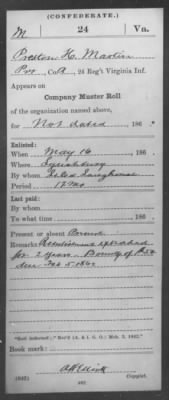 (CONFEDERATE.)
M 24 Va.
Preston H. Martin
Pvt, Co. B, 24 Reg't Virginia Inf.
Appears on
Company Muster Roll
of the organization named above,
for Not dated, 186 .
Enlisted:
When May 16, 186 .
Where Lynchburg
By whom Giles Langhorne
Period 12 mo
Last paid:
By whom
To what time , 186 .
Present or absent Present
Remarks: Reenlistment extended
for 2 years Bounty of $50
due Feb 5 1862
Book mark:
Copyist.
(642)